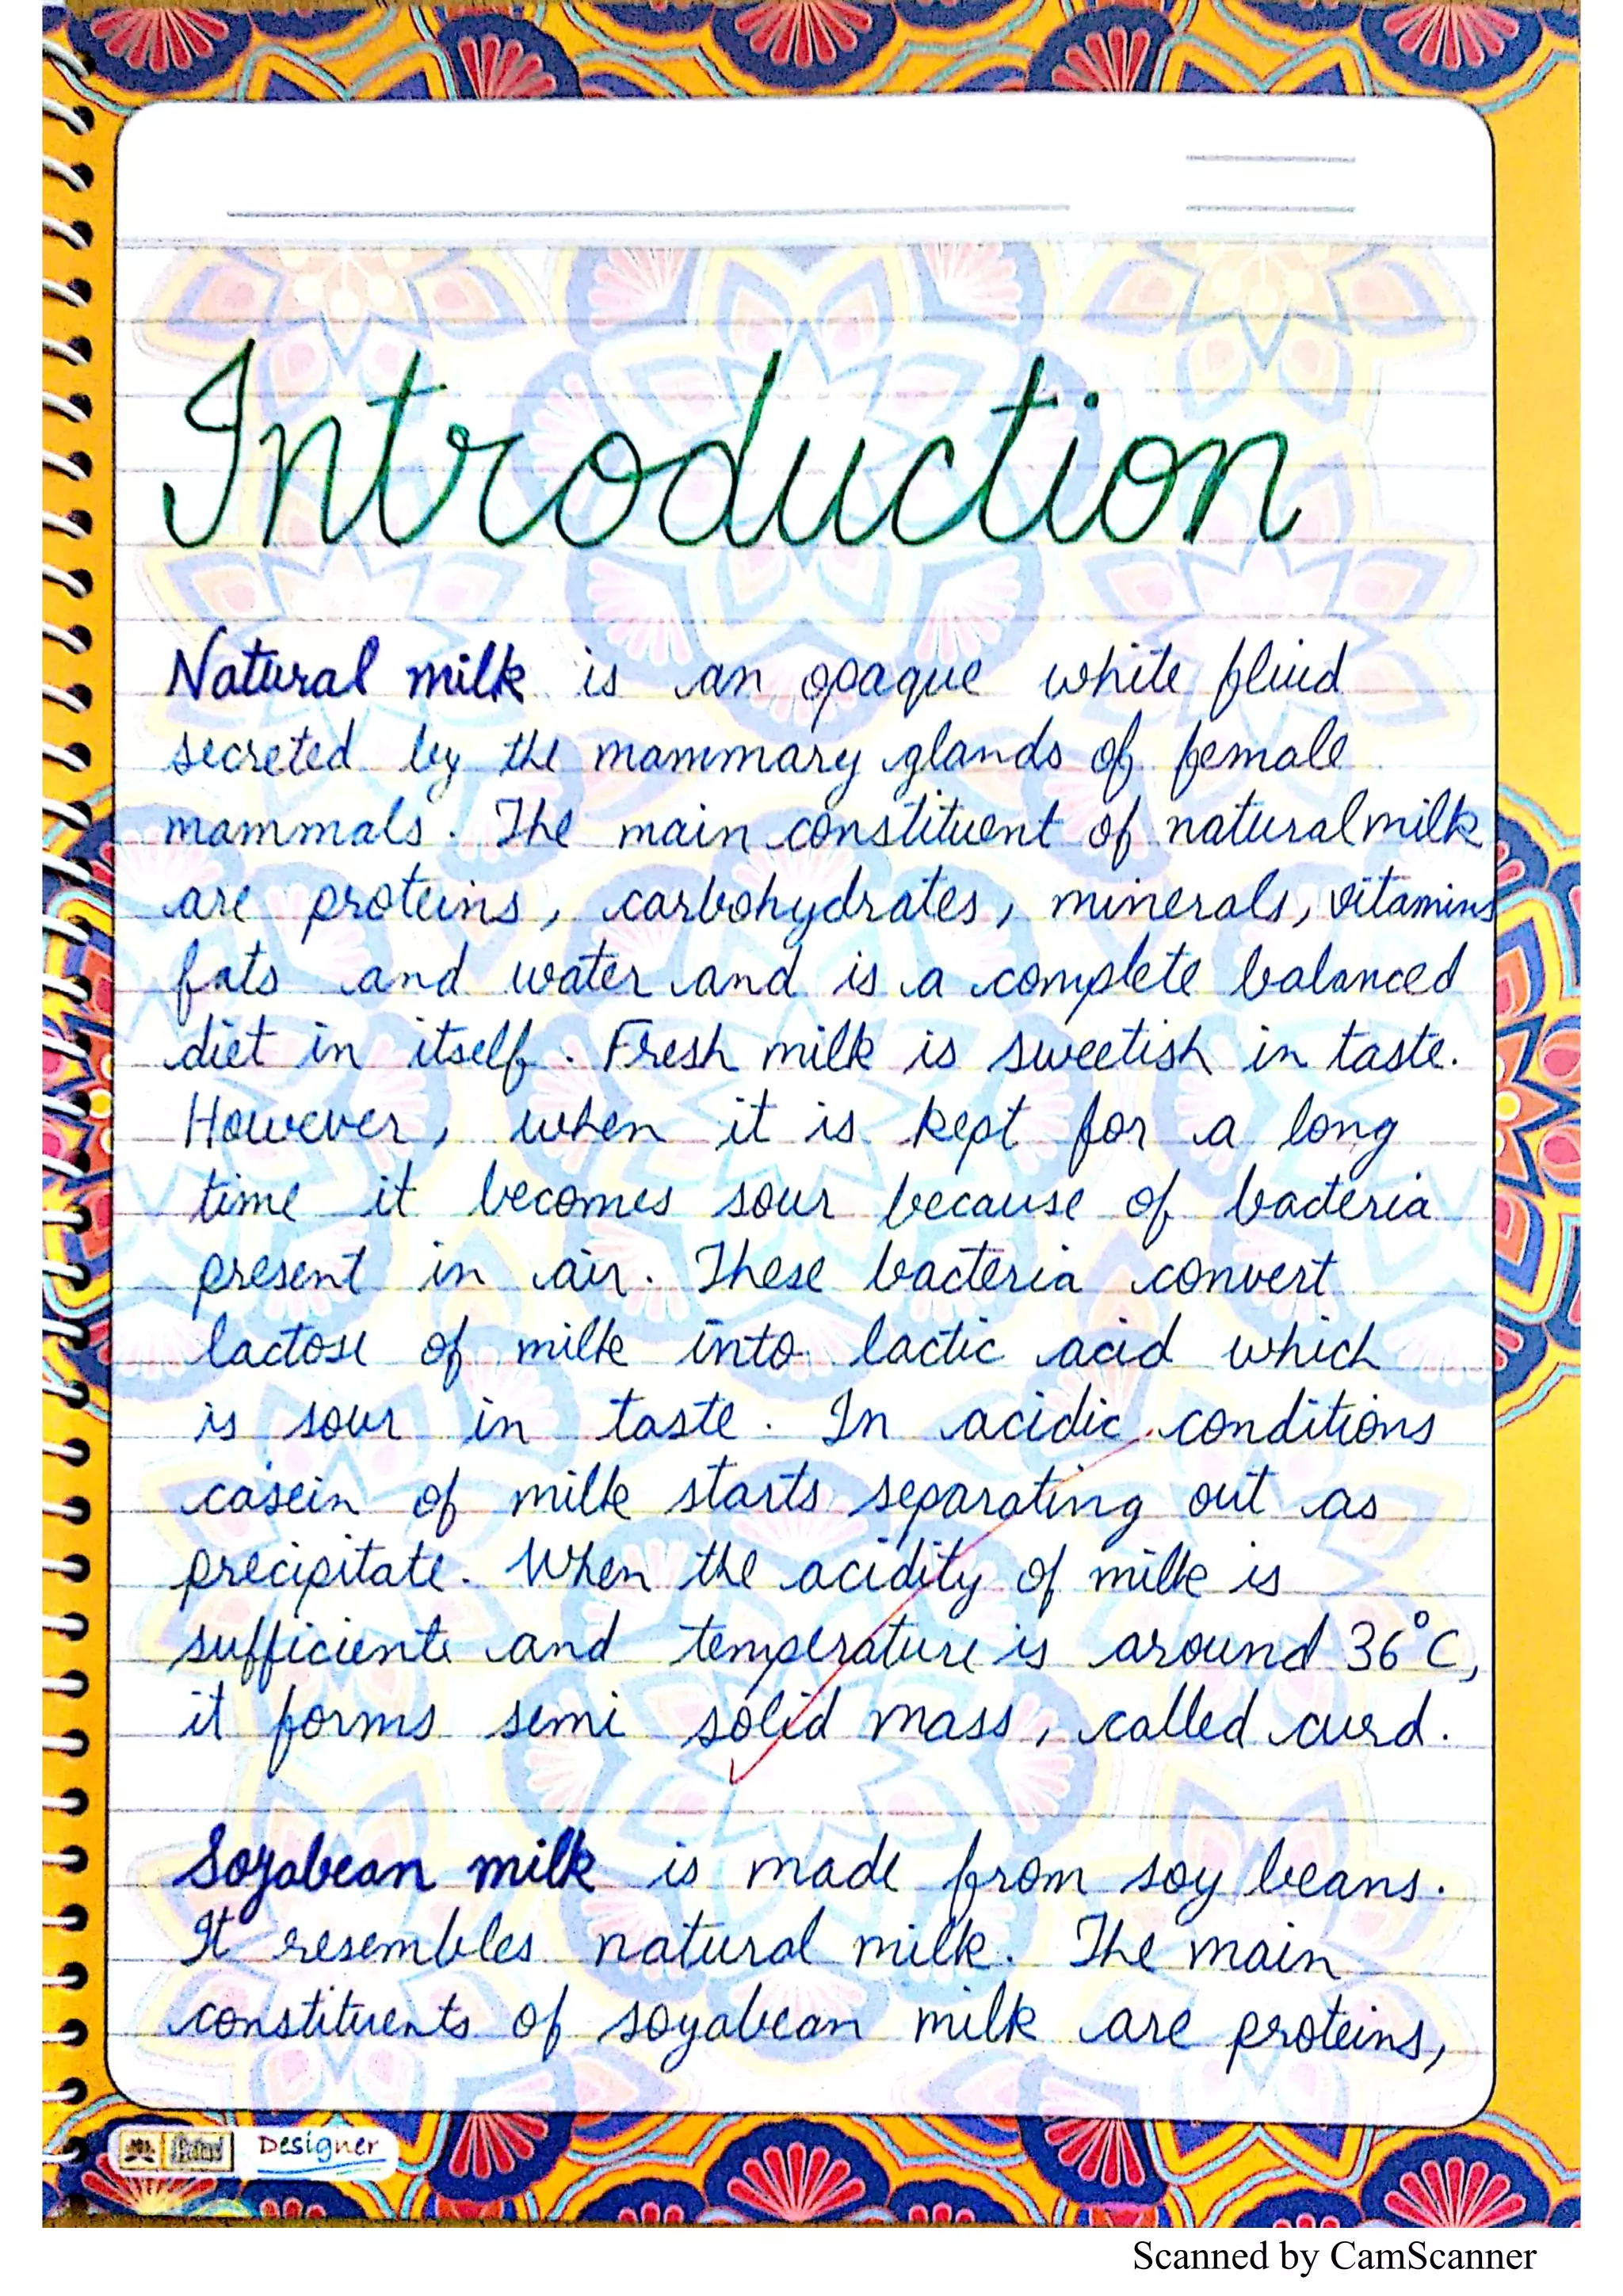 Introduction
Natural milk is an opaque white fluid
secreted by the mammary glands of female
mammals. The main constituent of natural milk
are proteins, carbohydrates, minerals, vitamins
fats and water and is a complete balanced
diet in itself. Fresh milk is sweetish in taste.
However, when it is kept for a long
time it becomes sour because of bacteria
present in air. These bacteria convert
lactose of milk into lactic acid which
is sour in taste. In acidic conditions
casein of milk starts separating out as
precipitate. When the acidity of milk is
sufficient and temperature is around 36°C,
it forms semi solid mass, called curd.
Soyabean milk is made from soy beans.
It resembles natural milk. The main
constituents of soyabean milk are proteins,
Designer
Scanned by CamScanner